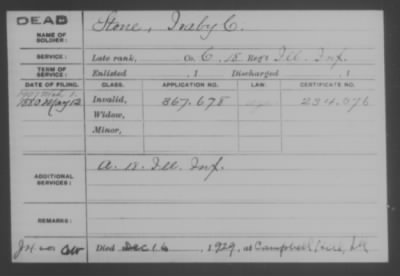 DEAD
NAME OF SOLDIER: Stone, Iraby C.
SERVICE: Late rank, Co. C, 18 Reg't Ill. Inf.
TERM OF SERVICE: Enlisted , 1 Discharged , 1
DATE OF FILING. CLASS. APPLICATION NO. LAW. CERTIFICATE NO.
1880 May 12 Invalid, 367.678 234.076
Widow,
Minor,
ADDITIONAL SERVICES: A. 18. Ill. Inf.
REMARKS:
Died Dec 16, 1929, at Campbell Hill, Ill